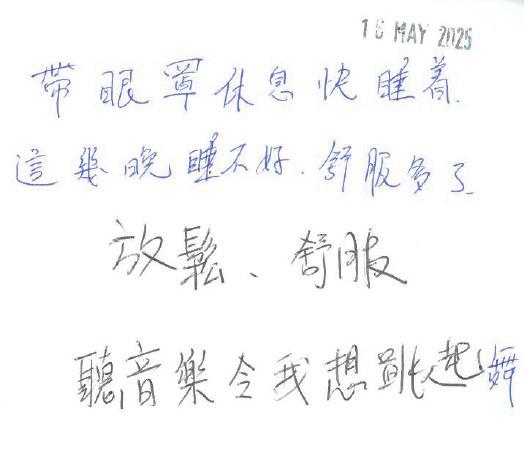 16 MAY 2025
帶眼罩休息快睡着.
這幾晚睡不好.舒服多了.
放鬆、舒服
聽音樂令我想跳起舞